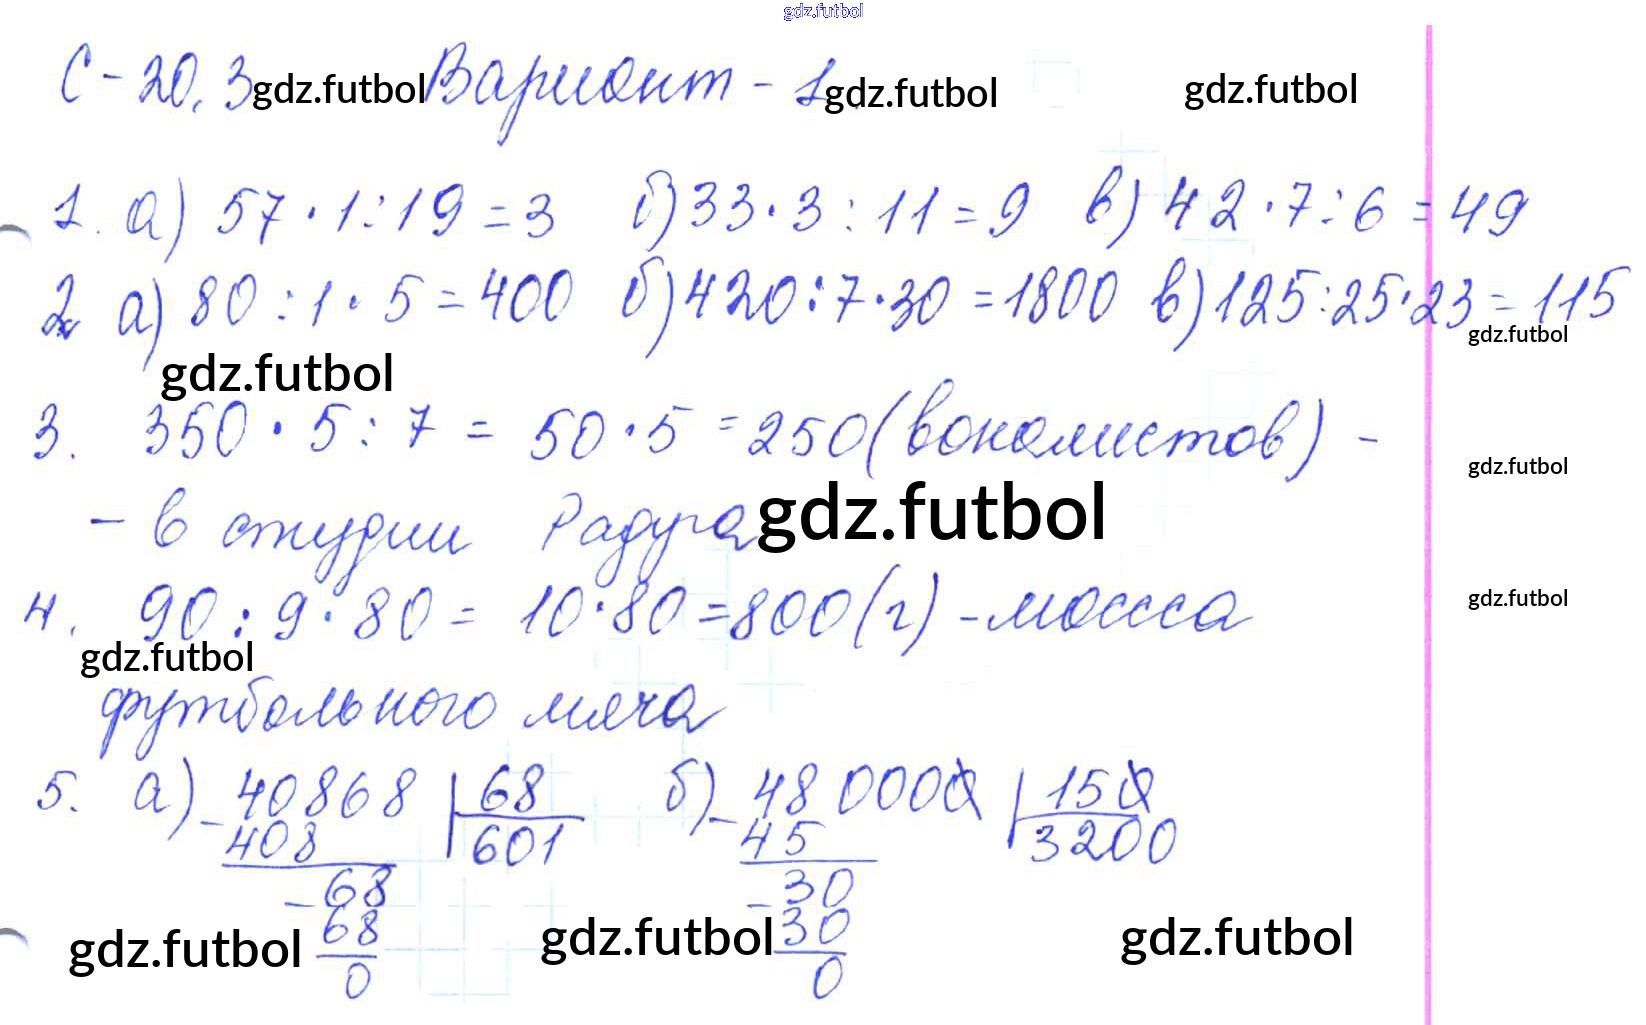 gdz.futbol
С-20.3 gdz.futbol Вариант - 1 gdz.futbol gdz.futbol
1. а) 57·1:19=3 б) 33·3:11=9 в) 42·7:6=49
2. а) 80:1·5=400 б) 420:7·30=1800 в) 125:25·23=115
gdz.futbol
gdz.futbol
3. 350·5:7=50·5=250 (вокалистов) -
gdz.futbol
- в студии Радуга gdz.futbol
4. 90:9·80=10·80=800 (г) - массса
gdz.futbol
gdz.futbol
футбольного мяча
5. а) -40868 | 68 б) -480000 | 150
408 601 45 3200
-68 -30
gdz.futbol 68 gdz.futbol 30 gdz.futbol
0 0